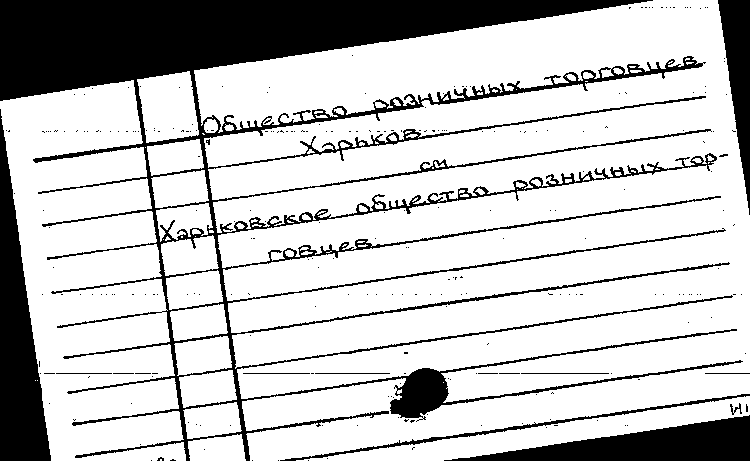 Общество розничных торговцев
Харьков.
см
Харьковское общество розничных тор-
говцев.